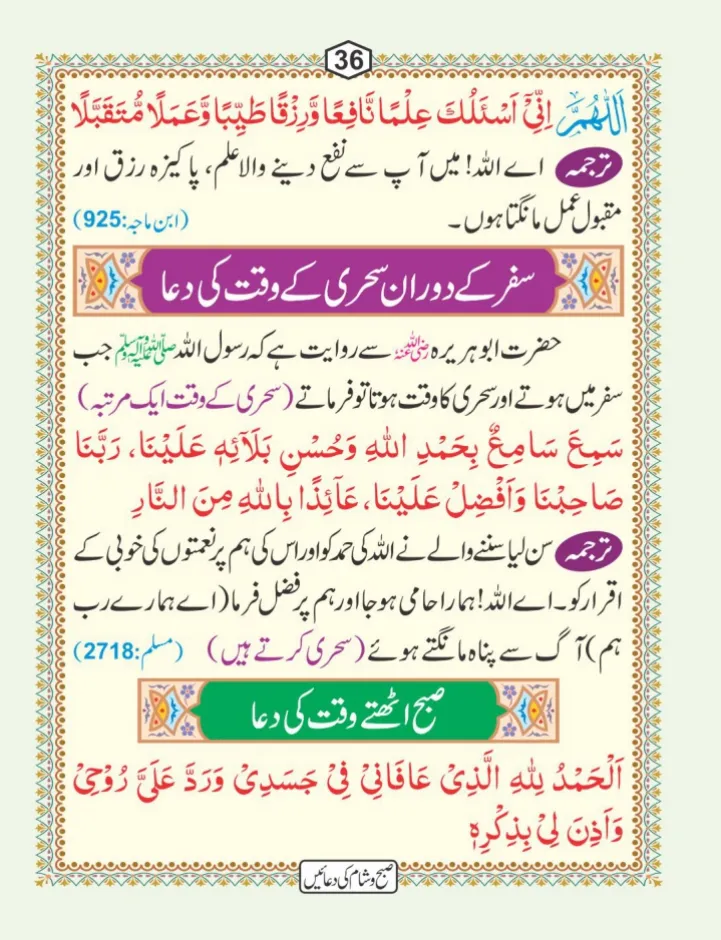 36
اَللّٰهُمَّ اِنِّیْۤ اَسْئَلُكَ عِلْمًا نَّافِعًا وَّرِزْقًا طَیِّبًا وَّعَمَلًا مُّتَقَبَّلًا
ترجمہ اے اللہ! میں آپ سے نفع دینے والا علم، پاکیزہ رزق اور
مقبول عمل مانگتا ہوں۔ (ابن ماجہ:925)
سفر کے دوران سحری کے وقت کی دعا
حضرت ابوہریرہ رضی اللہ عنہ سے روایت ہے کہ رسول اللہ صلی اللہ علیہ وسلم جب
سفر میں ہوتے اور سحری کا وقت ہوتا تو فرماتے (سحری کے وقت ایک مرتبہ)
سَمِعَ سَامِعٌ بِحَمْدِ اللّٰهِ وَحُسْنِ بَلَآئِهٖ عَلَیْنَا، رَبَّنَا
صَاحِبْنَا وَاَفْضِلْ عَلَیْنَا، عَآئِذًا بِاللّٰهِ مِنَ النَّارِ
ترجمہ سن لیا سننے والے نے اللہ کی حمد کو اور اس کی ہم پر نعمتوں کی خوبی کے
اقرار کو۔ اے اللہ! ہمارا حامی ہوجا اور ہم پر فضل فرما (اے ہمارے رب
ہم) آگ سے پناہ مانگتے ہوئے (سحری کرتے ہیں) (مسلم:2718)
صبح اٹھتے وقت کی دعا
اَلْحَمْدُ لِلّٰهِ الَّذِیْ عَافَانِیْ فِیْ جَسَدِیْ وَرَدَّ عَلَیَّ رُوْحِیْ
وَاَذِنَ لِیْ بِذِكْرِهٖ
صبح وشام کی دعائیں